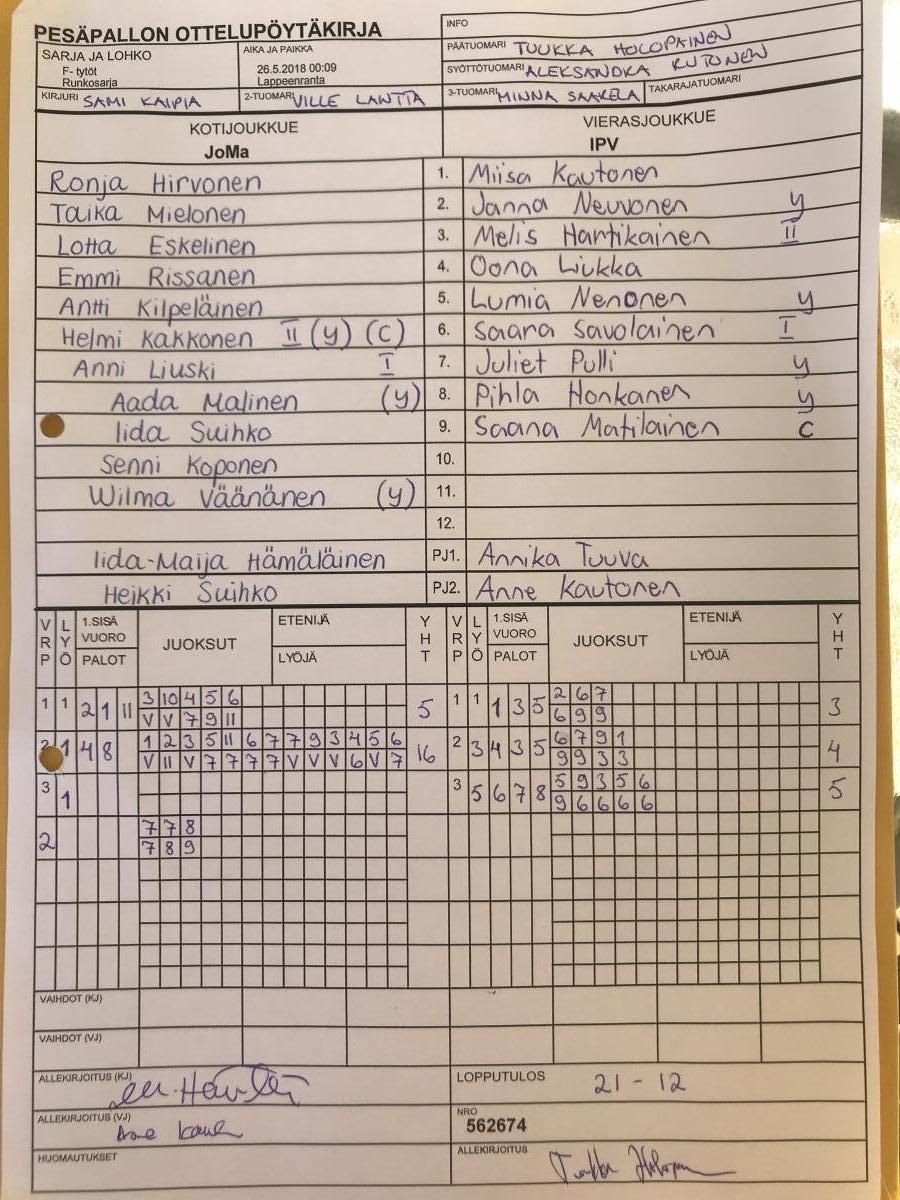 PESÄPALLON OTTELUPÖYTÄKIRJA
INFO
SARJA JA LOHKO
F- tytöt
Runkosarja
AIKA JA PAIKKA
26.5.2018 00:09
Lappeenranta
PÄÄTUOMARI TUUKKA HOLOPAINEN
SYÖTTÖTUOMARI ALEKSANDRA KUTONEN
KIRJURI SAMI KAIPIA
2-TUOMARI VILLE LANTTA
3-TUOMARI MINNA SAARELA
TAKARAJATUOMARI
KOTIJOUKKUE
JoMa
VIERASJOUKKUE
IPV
Ronja Hirvonen 1. Miisa Kautonen
Taika Mielonen 2. Janna Neuvonen y
Lotta Eskelinen 3. Melis Hartikainen II
Emmi Rissanen 4. Oona Liukka
Antti Kilpeläinen 5. Lumia Nenonen y
Helmi Kakkonen II (y) (c) 6. Saara Savolainen I
Anni Liuski I 7. Juliet Pulli y
Aada Malinen (y) 8. Pihla Honkanen y
Iida Suihko 9. Saana Matilainen c
Senni Koponen 10.
Wilma Väänänen (y) 11.
12.
Iida-Maija Hämäläinen PJ1. Annika Tuuva
Heikki Suihko PJ2. Anne Kautonen
VRP LYÖ 1.SISÄ VUORO PALOT JUOKSUT ETENIJÄ LYÖJÄ YHT VRP LYÖ 1.SISÄ VUORO PALOT JUOKSUT ETENIJÄ LYÖJÄ YHT
1 1 2 1 11 3 10 4 5 6 5 1 1 1 3 5 2 6 7 3
V V 7 9 11 6 9 9
2 1 4 8 1 2 3 5 11 6 7 7 9 3 4 5 6 16 2 3 4 3 5 6 7 9 1 4
V 11 V 7 7 7 7 V V V 6 V 7 9 9 3 3
3 1 3 5 6 7 8 5 9 3 5 6 5
9 6 6 6 6
2 7 7 8
7 8 9
VAIHDOT (KJ)
VAIHDOT (VJ)
ALLEKIRJOITUS (KJ)
LOPPUTULOS 21 - 12
ALLEKIRJOITUS (VJ)
NRO
562674
HUOMAUTUKSET
ALLEKIRJOITUS